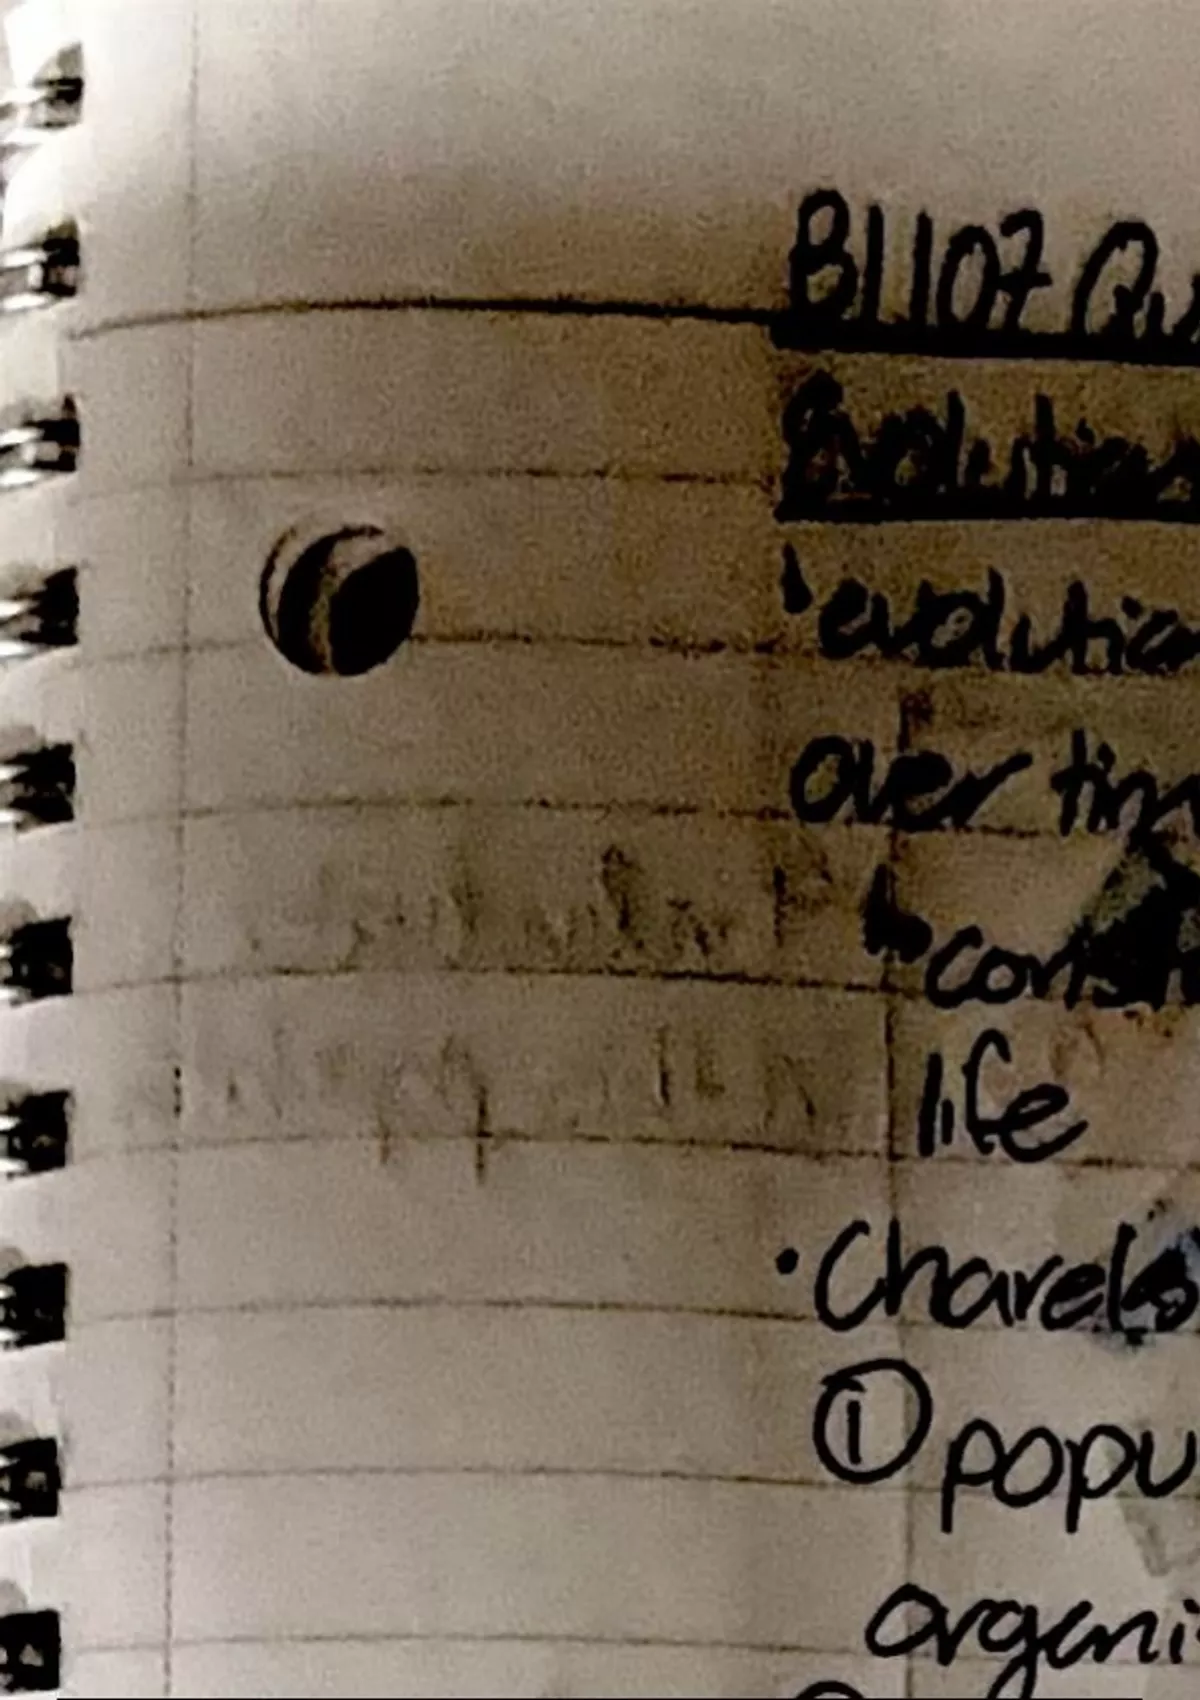 B1107 Qu
Evolution
evolutio
over tim
↳ consi
life
• Charels
① popu
organi